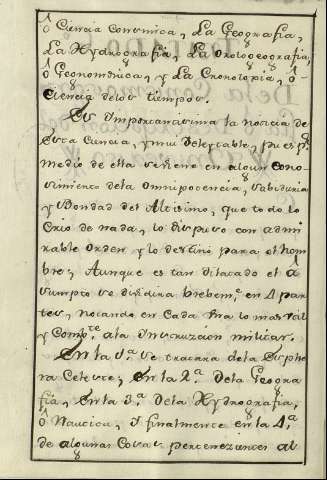 ô Ciencia Conomica, La Geografia,
La Hydrografia, La Orologeografia,
ô Geonomonica, y La Cronotopia, ô
Ciencia delos tiempos.
Es Importancisima la noticia de
esta Ciencia, ymui Deleytable, pues pr.
medio de ella veñemos en algun cono-
vimiento dela Omnipotencia, Sabiduria
y Bondad del Altisimo, que todo lo
Crio de nada, lo dispuso con admi
rable Orden y lo destinó para el hom
bre; Aunque es tan dilatado el â
sumpto se dividira brebemte. en 4 par
tes, notando en Cada Una lo mas vtil
y Compte. ala Instruczion militar.
En la 1ª. se tratara dela Suphe
ra Celeste; En la 2ª. Dela Geogra
fia, En la 3ª. Dela Hydrografia,
ô Nautica, Y finalmente en la 4ª.
de algunas Cosas pertenezientes al